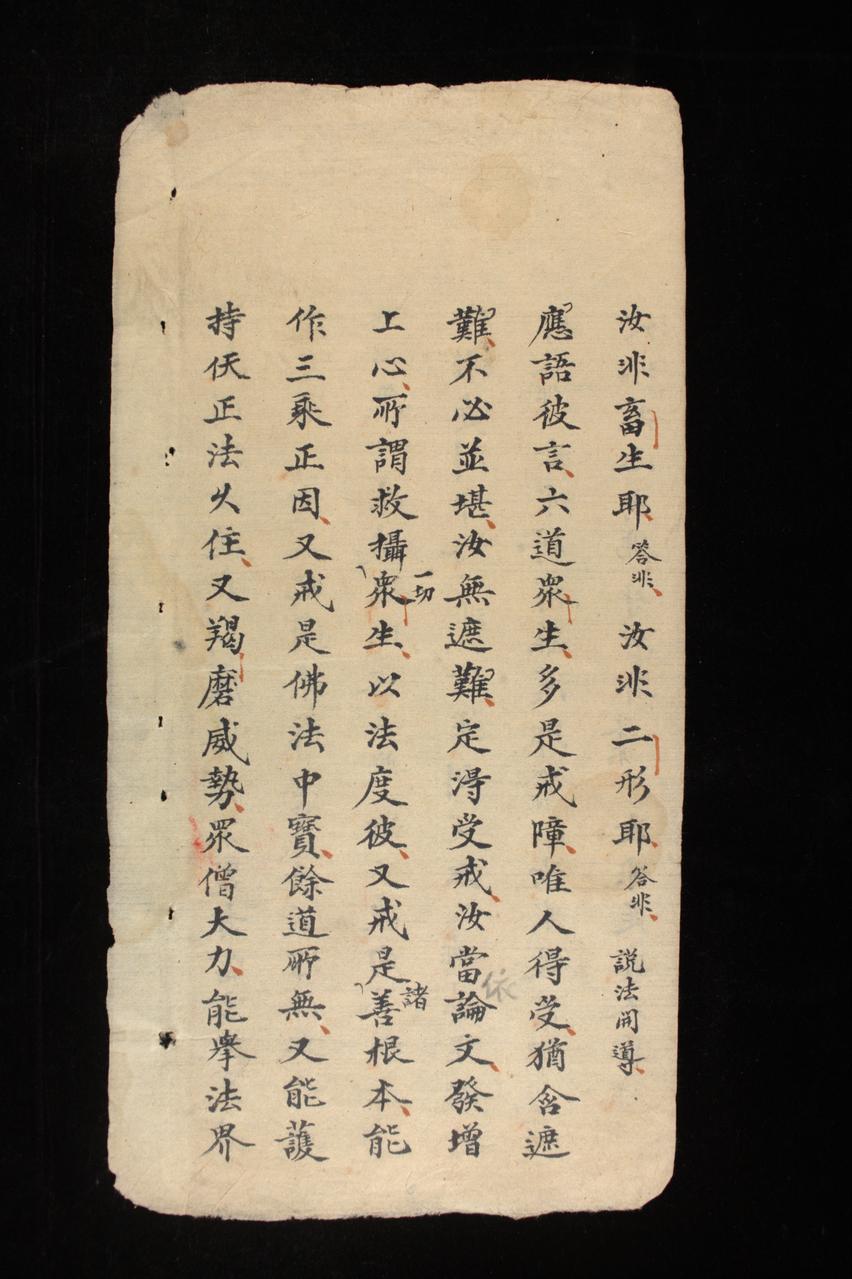 汝非畜生耶答非汝非二形耶答非說法開導
應語彼言六道眾生多是戒障唯人得受猶含遮
難不必並堪汝無遮難定得受戒汝當依論文發增
上心所謂救攝一切眾生以法度彼又戒是諸善根本能
作三乘正因又戒是佛法中寶餘道所無又能護
持佛正法久住又羯磨威勢眾僧大力能舉法界